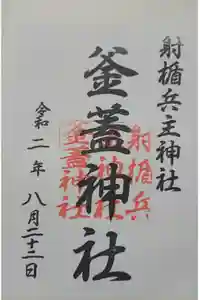 射楯兵主神社
釜蓋神社
令和二年八月二十三日
射楯兵
主神社
釜蓋神社